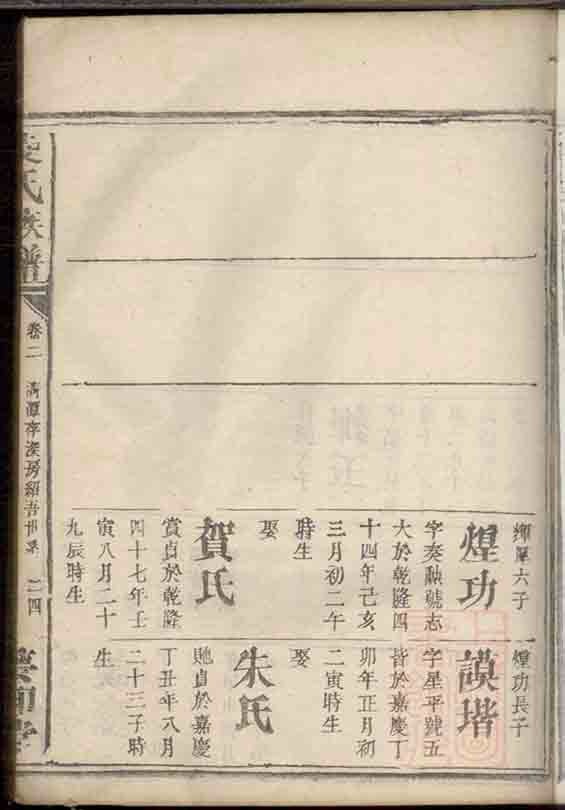 煌功
字奏勲號志
大於乾隆四
十四年己亥
三月初二午
時生
娶
賀氏
賞貞於乾隆
四十七年壬
寅八月二十
九辰時生
煌功長子
謨堦
字星平號五
皆於嘉慶丁
卯年正月初
二寅時生
娶
朱氏
貞於嘉慶
丁丑年八月
二十三子時
生
氏族譜
卷二